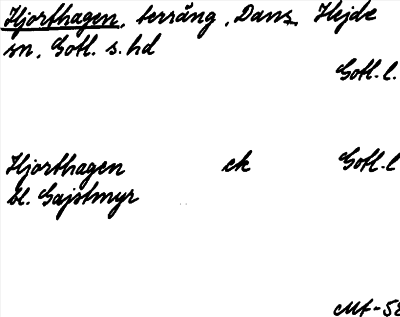 Hjorthagen, terräng, Dans, Hejde
sn, Gotl. s. hd
Gotl. l.
Hjorthagen ek Gotl. l
bl. Gajstmyr
Mt-58